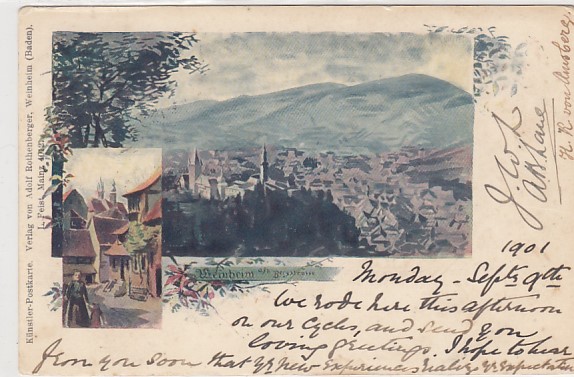 Künstler-Postkarte. Verlag von Adolf Rothenberger, Weinheim (Baden).
Feist, Mainz
Weinheim a/d Bergstrasse
1901
Monday - Septr 9th
We rode here this afternoon
on our cycles, and send you
loving greetings. I hope to hear
from you soon that yr new experiences realize yr expectations
J. W. L
von